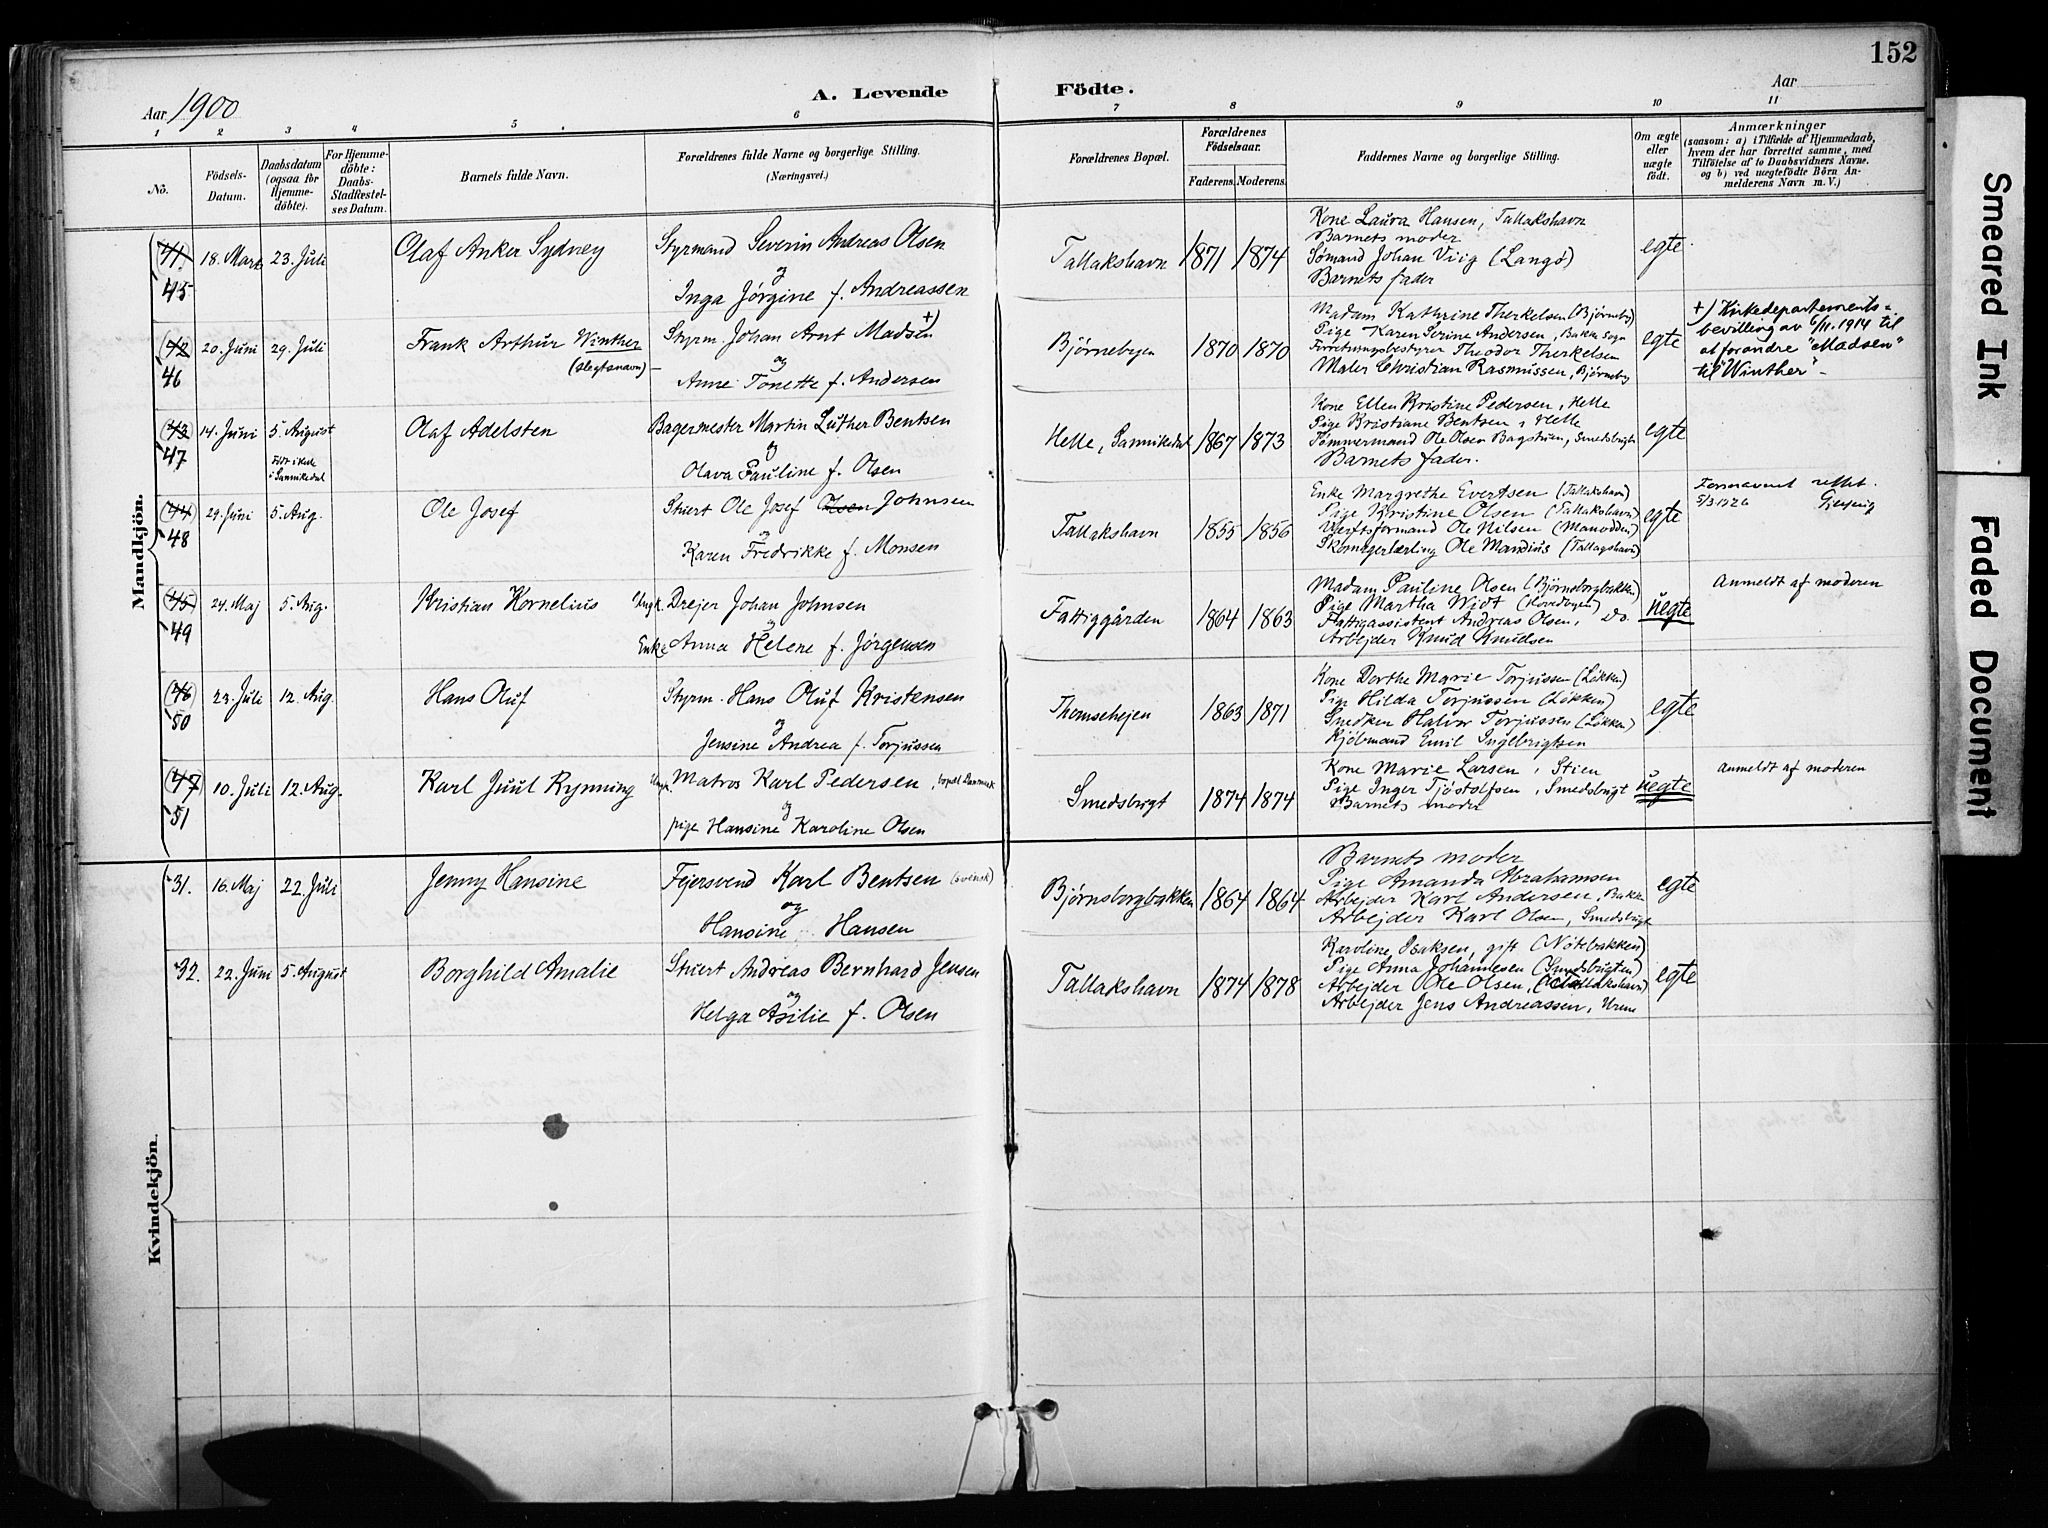 152
Aar 1900
A. Levende Födte.
Aar
1 2 3 4 5 6 7 8 9 10 11
No.
Födsels-Datum.
Daabsdatum (ogsaa for Hjemme-döbte).
For Hjemme-döbte: Daabs-Stadfæstel-ses Datum.
Barnets fulde Navn.
Forældrenes fulde Navne og borgerlige Stilling.
(Næringsvei.)
Forældrenes Bopæl.
Forældrenes Födselsaar.
Faderens. Moderens.
Faddernes Navne og borgerlige Stilling.
Om ægte eller uægte födt.
Anmærkninger
(saasom: a) i Tilfælde af Hjemmedaab, hvem der har forrettet samme, med Tilföielse af to Daabsvidners Navne, og b) ved uægtefödte Börn An-melderens Navn m. V.)
Mandkjön.
41. 45 18. Marts 23. Juli Olaf Anker Sydney
Styrmand Severin Andreas Olsen
og
Inga Jørgine f. Andreassen
Tallakshavn 1871 1874
Kone Laura Hansen, Tallakshavn
Barnets moder
Sømand Johan Viig (Langø)
Barnets fader
egte
42 46 20. Juni 29. Juli Frank Arthur Winther
(slegtsnavn)
Styrm. Johan Arnt Madsen +)
og
Anne Tonette f. Andersen
Bjørnebyen 1870 1870
Madam Kathrine Therkelsen (Bjørneby)
Pige Karen Serine Andersen, Bakke Sogn
Forretningsbestyrer Theodor Therkelsen
Maler Christian Rasmussen, Bjørneby
egte
+) Kirkedepartements-
bevilling av 6/11. 1914 til
at forandre "Madsen"
til "Winther" -
43 47 14. Juni 5. August
i Sannikedal
Olaf Adelsten
Bagermester Martin Luther Bentsen
og
Olava Pauline f. Olsen
Helle, Sannikedal 1867 1873
Kone Ellen Kristine Pedersen, Helle
Pige Kristiane Bentsen, Helle
Tømmermand Ole Olsen Bagstuen, Smedsbugt
Barnets fader.
egte
44 48 29. Juni 5. Aug. Ole Josef
Stuert Ole Josef Olsen Johnsen
og
Karen Fredrikke f. Monsen
Tallakshavn 1855 1856
Enke Margrethe Evertsen (Tallakshavn)
Pige Kristine Olsen (Tallakshavn)
Værftsformand Ole Nilsen (Manodden)
Skomagerlærling Ole Mandius (Tallagshavn)
egte
rettet.
5/3 1926
45 49 24. Maj 5. Aug. Kristian Kornelius
Ungk. Drejer Johan Johnsen
og
Enke Anna Helene f. Jørgensen
Fattiggården 1864 1863
Madam Pauline Olsen (Bjørnsborgbakken)
Pige Martha Widt (Hovedbyen)
Fattigassistent Andreas Olsen, Do.
Arbejder Knud Knudsen
uegte
Anmeldt af moderen
46 50 23. Juli 12. Aug. Hans Oluf
Styrm. Hans Oluf Kristensen
og
Jensine Andrea f. Torjussen
Thomsehejen 1863 1871
Kone Dorthe Marie Torjussen (Løkken)
Pige Hilda Torjussen (Løkken)
Snedker Halvor Torjussen (Løkken)
Kjöbmand Emil Ingebrigtsen
egte
47 51 10. Juli 12. Aug. Karl Juul Rynning
Ungk. Matros Karl Pedersen, bopæl Danmark
og
pige Hansine Karoline Olsen
Smedsbugt 1874 1874
Kone Marie Larsen, Stien
Pige Inger Tjøstolfsen, Smedsbugt
Barnets moder
uegte
Anmeldt af moderen
Kvindekjön.
31. 16. Maj 22. Juli Jenny Hansine
Fejersvend Karl Bentsen (svensk)
og
Hansine Hansen
Bjørnsborgbakken 1864 1864
Barnets moder
Pige Amanda Abrahamsen
Arbejder Karl Andersen, Bakke
Arbejder Karl Olsen, Smedsbugt
egte
32. 22. Juni 5. August Borghild Amalie
Stuert Andreas Bernhard Jensen
og
Helga Asilie f. Olsen
Tallakshavn 1874 1878
Karoline Isaksen, gift (Nötebakken)
Pige Anna Johannesen (Smedsbugten)
Arbejder Ole Olsen, (Tallakshavn)
Arbejder Jens Andreassen, Urene
egte
Smeared Ink
Faded Document